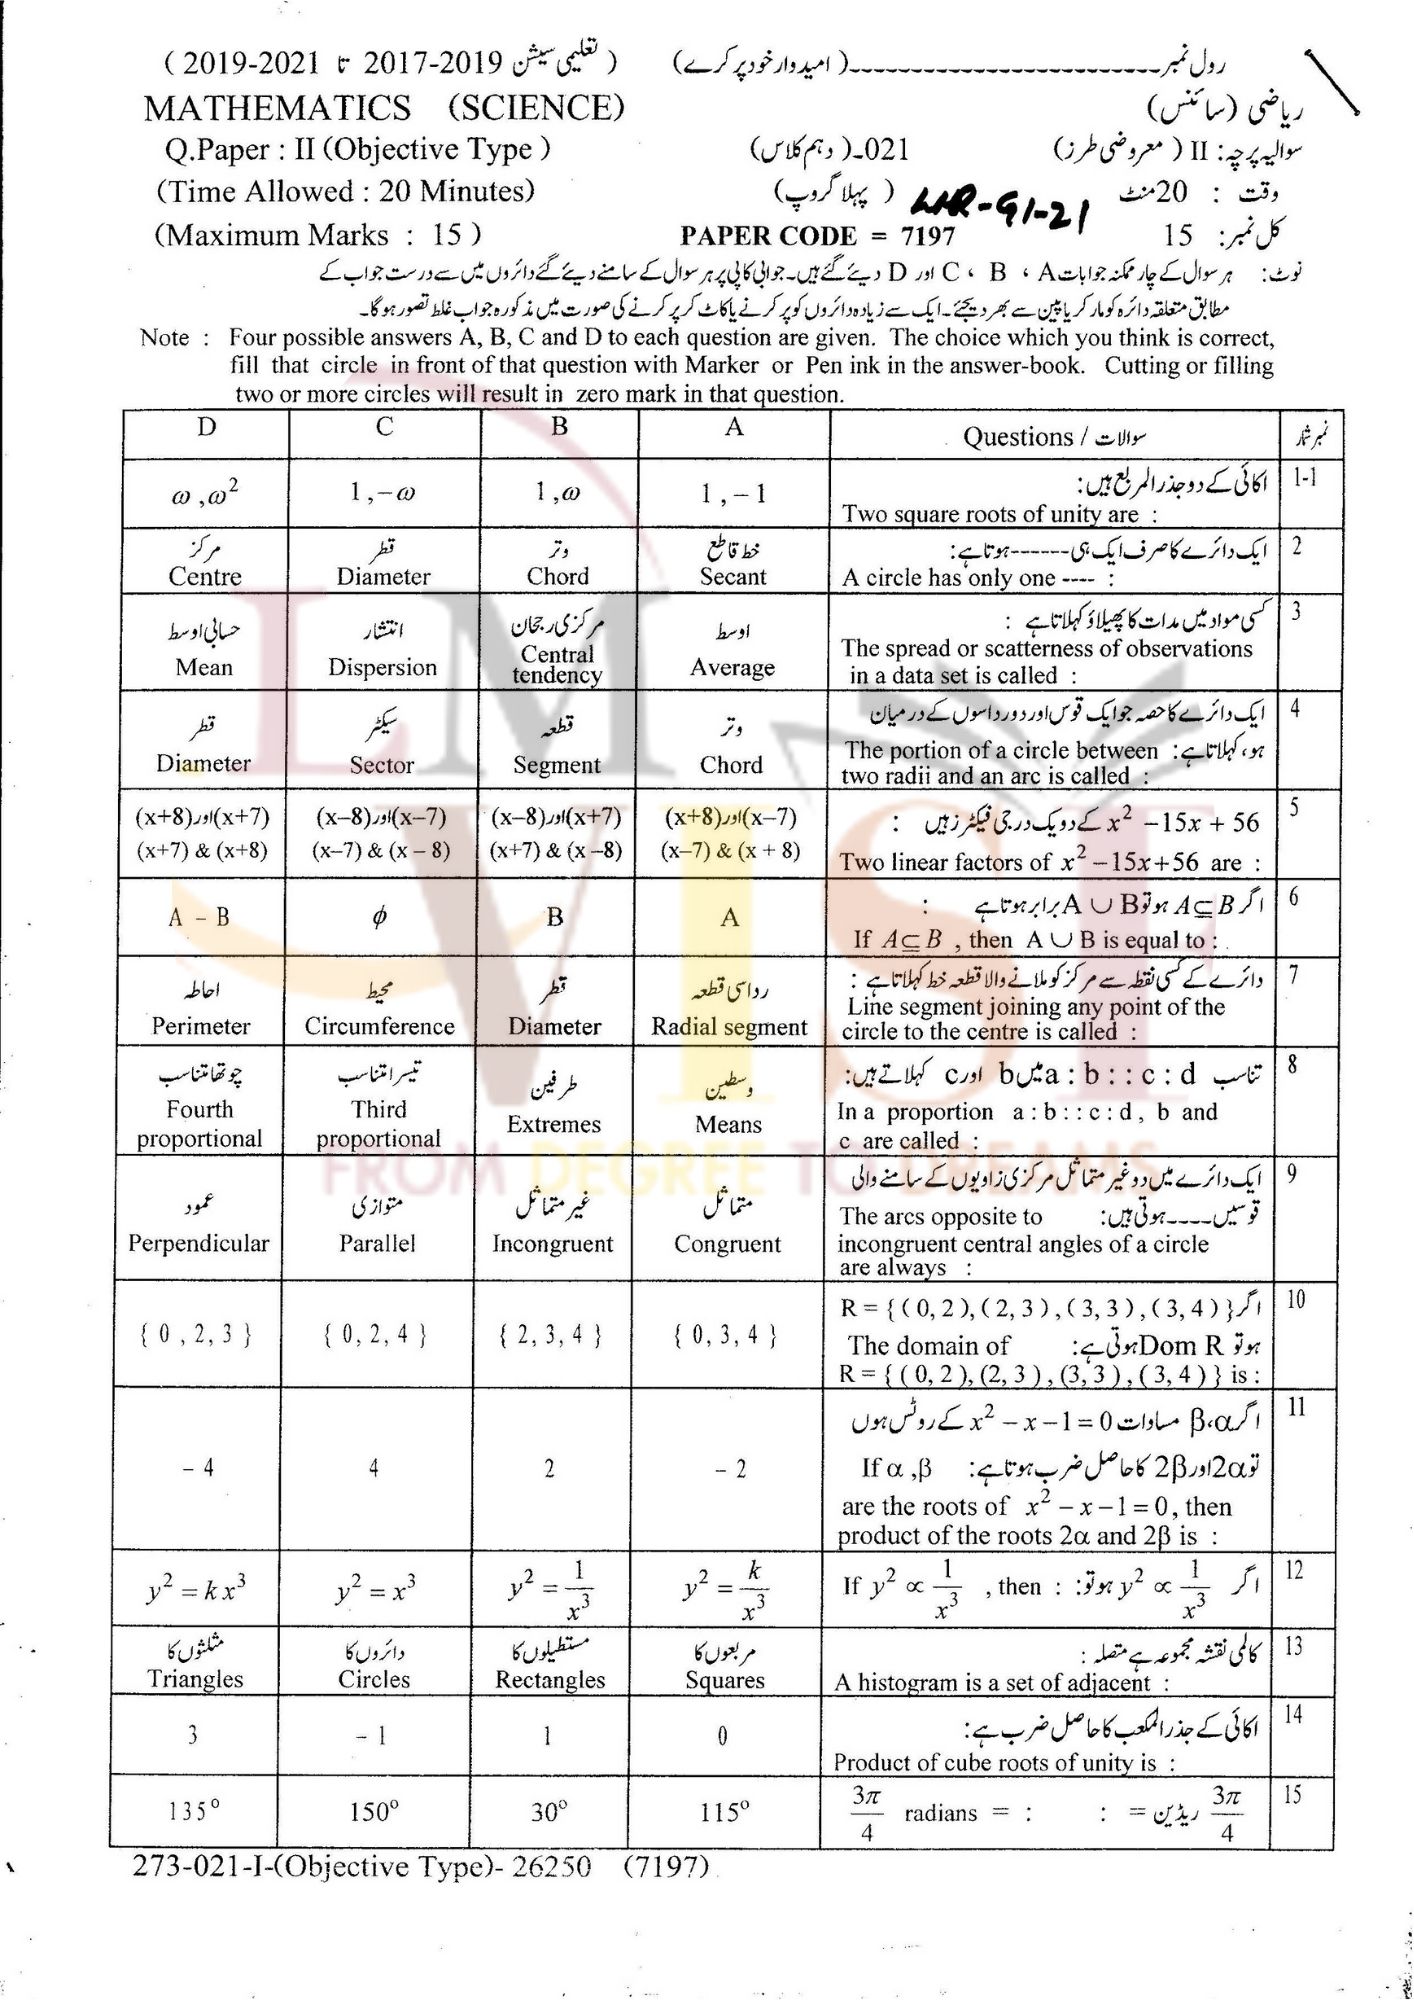 ( تعلیمی سیشن 2017-2019 تا 2019-2021 ) رول نمبر------------------------( امیدوار خود پر کرے )
MATHEMATICS (SCIENCE) ریاضی (سائنس)
Q.Paper : II (Objective Type ) 021-( دہم کلاس) سوالیہ پرچہ: II ( معروضی طرز )
(Time Allowed : 20 Minutes) ( پہلا گروپ ) LHR-G1-21 وقت : 20منٹ
(Maximum Marks : 15 ) PAPER CODE = 7197 کل نمبر: 15
نوٹ: ہر سوال کے چار ممکنہ جوابات A ، B ، C اور D دیئے گئے ہیں۔ جوابی کاپی پر ہر سوال کے سامنے دیئے گئے دائروں میں سے درست جواب کے
مطابق متعلقہ دائرہ کو مارکر یا پین سے بھر دیجئے۔ ایک سے زیادہ دائروں کو پر کرنے یا کاٹ کر پر کرنے کی صورت میں مذکورہ جواب غلط تصور ہوگا۔
Note : Four possible answers A, B, C and D to each question are given. The choice which you think is correct,
fill that circle in front of that question with Marker or Pen ink in the answer-book. Cutting or filling
two or more circles will result in zero mark in that question.
D C B A Questions / سوالات نمبر شمار
ω ,ω² 1 ,−ω 1 ,ω 1 , −1 اکائی کے دو جذرالمربع ہیں: 1-1
Two square roots of unity are :
مرکز قطر وتر خط قاطع ایک دائرے کا صرف ایک ہی ------ہوتا ہے: 2
Centre Diameter Chord Secant A circle has only one ---- :
حسابی اوسط انتشار مرکزی رجحان اوسط کسی مواد میں مدات کا پھیلاؤ کہلاتا ہے : 3
Mean Dispersion Central tendency Average The spread or scatterness of observations
in a data set is called :
قطر سیکٹر قطعہ وتر ایک دائرے کا حصہ جو ایک قوس اور دو رداسوں کے درمیان 4
ہو، کہلاتا ہے: The portion of a circle between
Diameter Sector Segment Chord two radii and an arc is called :
(x+7)اور(x+8) (x–7)اور(x–8) (x+7)اور(x–8) (x–7)اور(x+8) x² −15x + 56 کے دو یک درجی فیکٹرز ہیں : 5
(x+7) & (x+8) (x–7) & (x – 8) (x+7) & (x –8) (x–7) & (x + 8) Two linear factors of x² −15x+56 are :
A – B ϕ B A اگر A⊆B ہو تو A ∪ B برابر ہوتا ہے : 6
If A⊆B , then A ∪ B is equal to :
احاطہ محیط قطر رداسی قطعہ دائرے کے کسی نقطہ سے مرکز کو ملانے والا قطعہ خط کہلاتا ہے : 7
Perimeter Circumference Diameter Radial segment Line segment joining any point of the
circle to the centre is called :
چوتھا تناسب تیسرا تناسب طرفین وسطین تناسب a : b : : c : d میں b اور c کہلاتے ہیں: 8
Fourth proportional Third proportional Extremes Means In a proportion a : b : : c : d , b and
c are called :
عمود متوازی غیر متماثل متماثل ایک دائرے میں دو غیر متماثل مرکزی زاویوں کے سامنے والی 9
قوسیں ----ہوتی ہیں: The arcs opposite to
Perpendicular Parallel Incongruent Congruent incongruent central angles of a circle
are always :
{ 0 , 2, 3 } { 0, 2, 4 } { 2, 3, 4 } { 0, 3, 4 } اگر R = { ( 0, 2 ), ( 2, 3 ) , ( 3, 3 ) , ( 3, 4 ) } 10
ہو تو Dom R ہوتی ہے: The domain of
R = { ( 0, 2 ), (2, 3 ) , (3, 3 ) , ( 3, 4 ) } is :
– 4 4 2 – 2 اگر α،β مساوات x² − x −1 = 0 کے روٹس ہوں 11
تو 2α اور 2β کا حاصل ضرب ہوتا ہے: If α ,β
are the roots of x² − x −1 = 0, then
product of the roots 2α and 2β is :
y² = k x³ y² = x³ y² = 1/x³ y² = k/x³ If y² ∝ 1/x³ , then : اگر y² ∝ 1/x³ ہو تو: 12
مثلثوں کا دائروں کا مستطیلوں کا مربعوں کا کالمی نقشہ مجموعہ ہے متصلہ : 13
Triangles Circles Rectangles Squares A histogram is a set of adjacent :
3 – 1 1 0 اکائی کے جذرالمکعب کا حاصل ضرب ہے: 14
Product of cube roots of unity is :
135° 150° 30° 115° 3π/4 radians = : 3π/4 ریڈین = : 15
273-021-I-(Objective Type)- 26250 (7197)
LM VISF
FROM DEGREE TO DREAMS